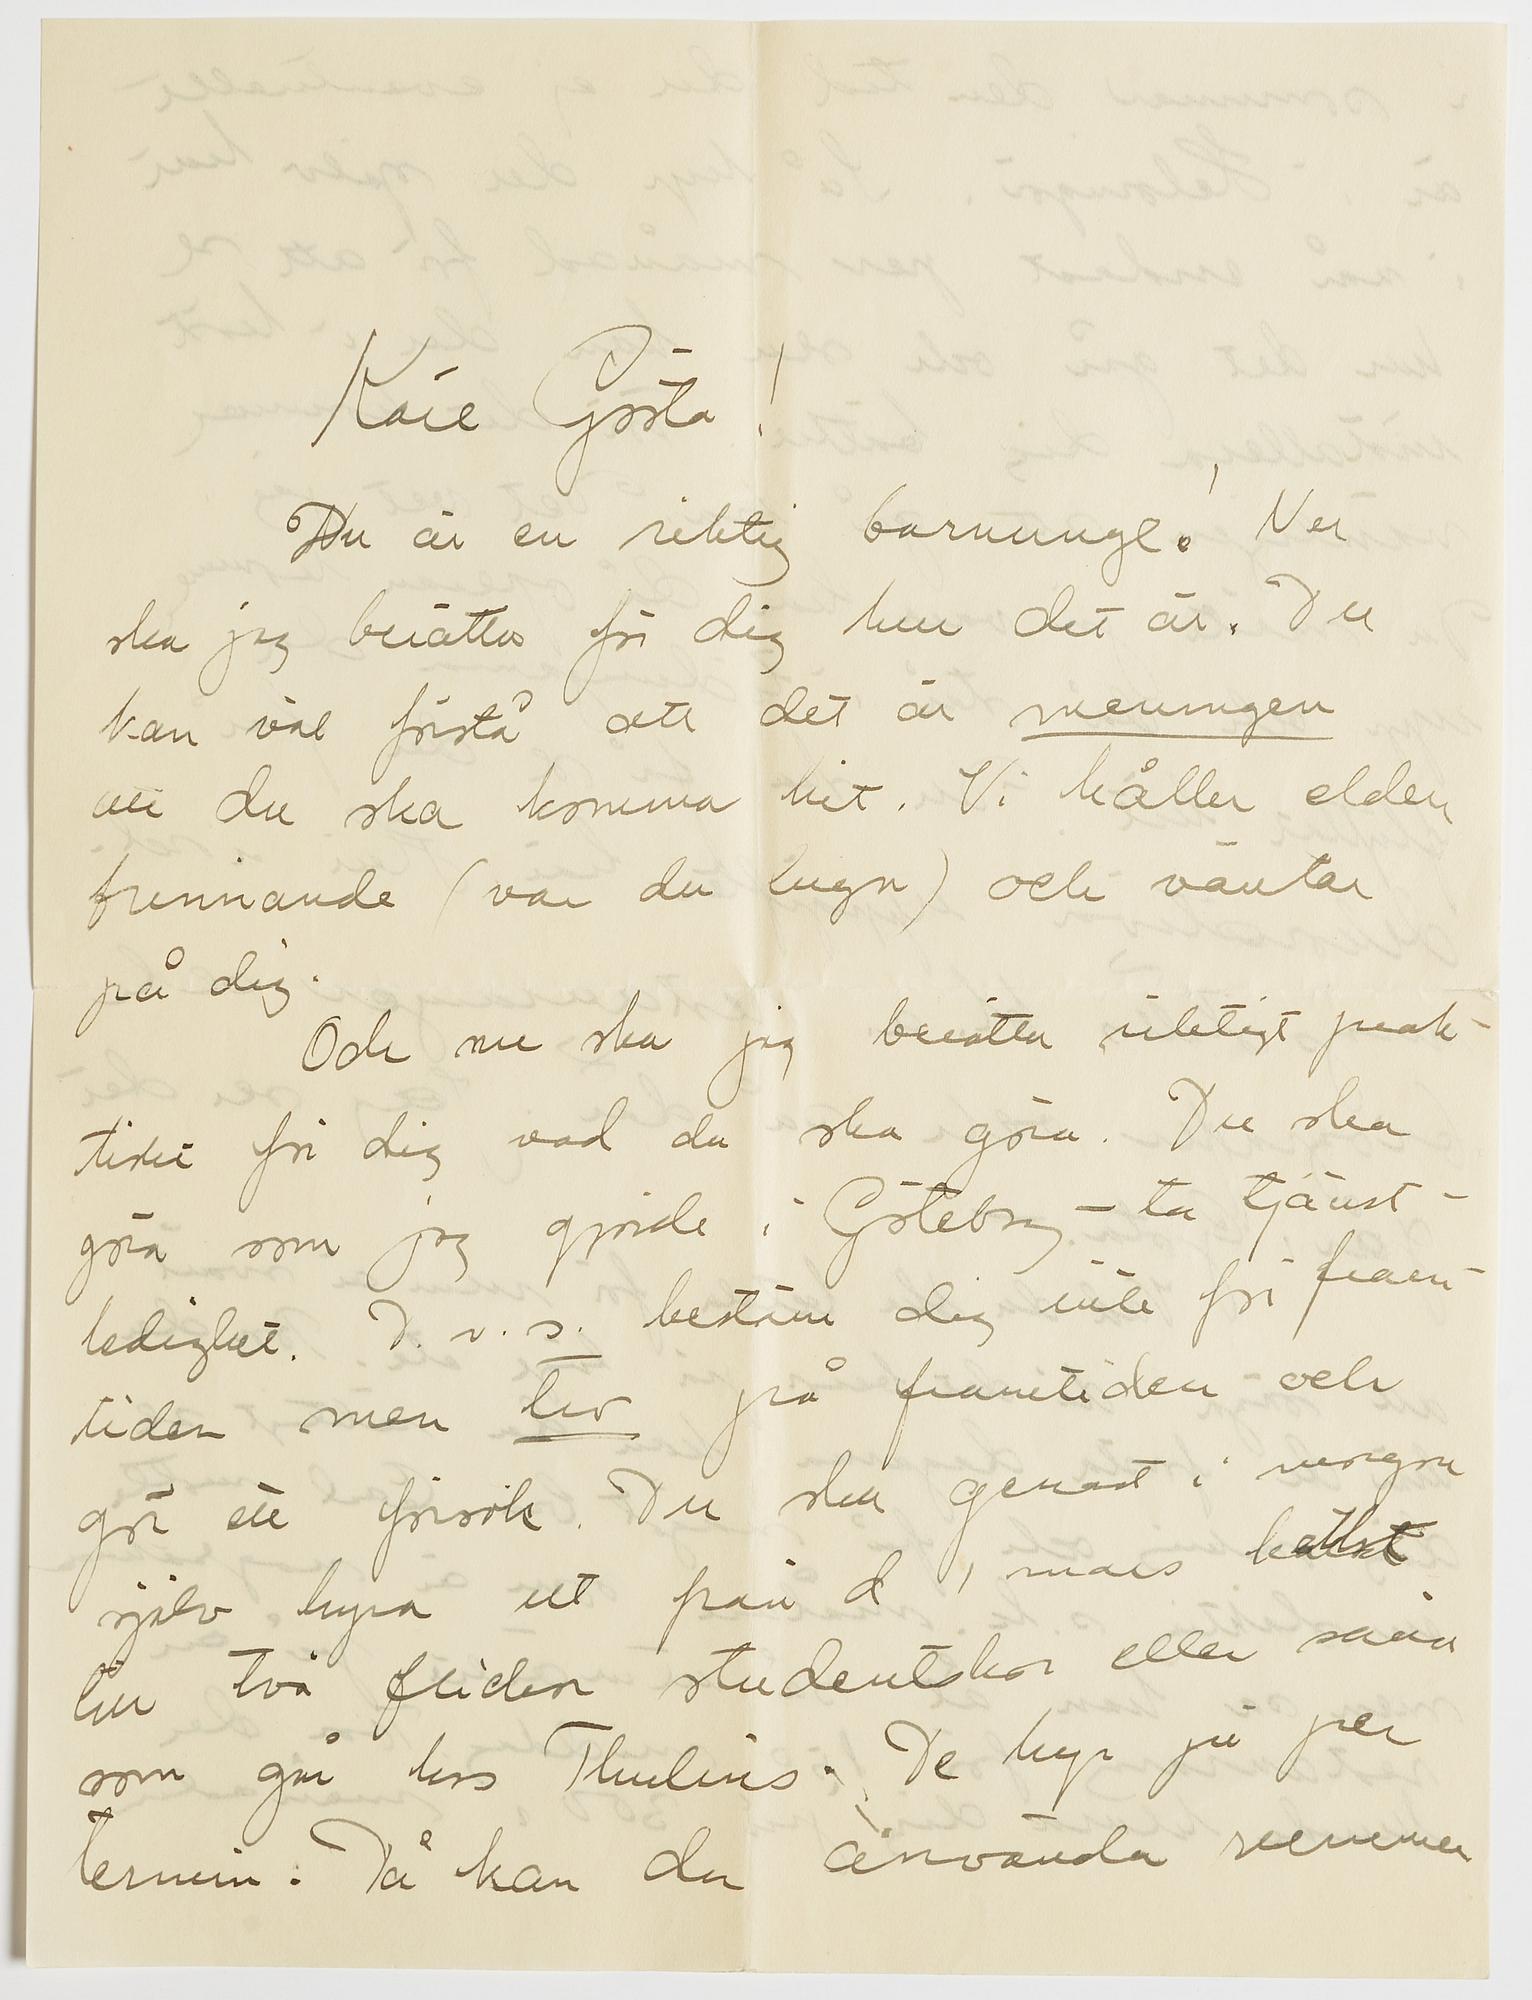 Käre Gösta!
Du är en riktig barnunge! Nu
ska jag berätta för dig hur det är. Du
kan väl förstå att det är meningen
att du ska komma hit. Vi håller elden
brinnande (var du lugn) och väntar
på dig.
Och nu ska jag berätta riktigt prak-
tiskt för dig vad du ska göra. Du ska
göra som jag gjorde i Göteborg – ta tjänst-
ledighet. D. v. s. bestäm dig inte för fram-
tiden men tro på framtiden och
gör ett försök. Du ska genast i morgon
själv hyra ut från d 1 mars
två studentskor eller såna
som går hos Thulins. De hyr ju per
termin. Då kan du använda rummen